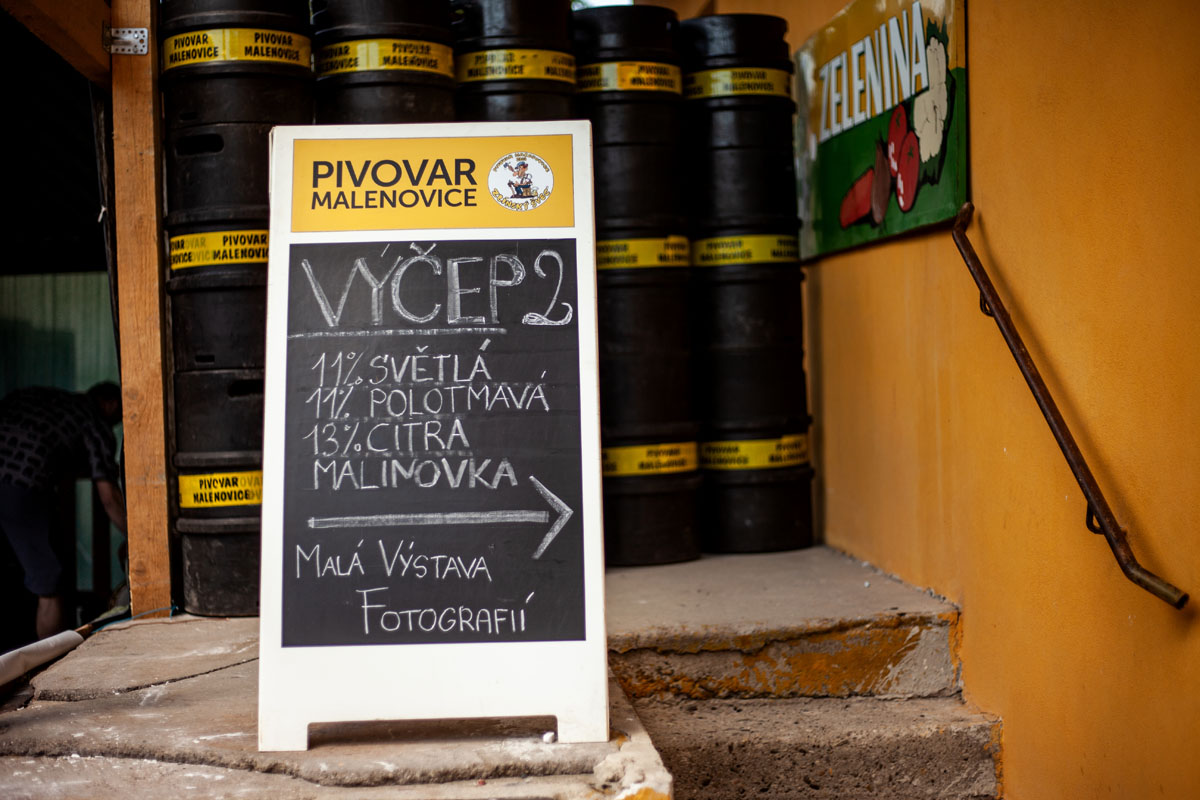 PIVOVAR
MALENOVICE
PIVOVAR
MALENOVICE
PIVOVAR
MALENOVICE
PIVOVAR
MALENOVICE
ZELENINA
PIVOVAR
MALENOVICE
VÝČEP 2
11% SVĚTLÁ
11% POLOTMAVÁ
13% CITRA
MALINOVKA
MALÁ VÝSTAVA
FOTOGRAFIÍ
PIVOVAR
MALENOVICE
PIVOVAR
MALENOVICE